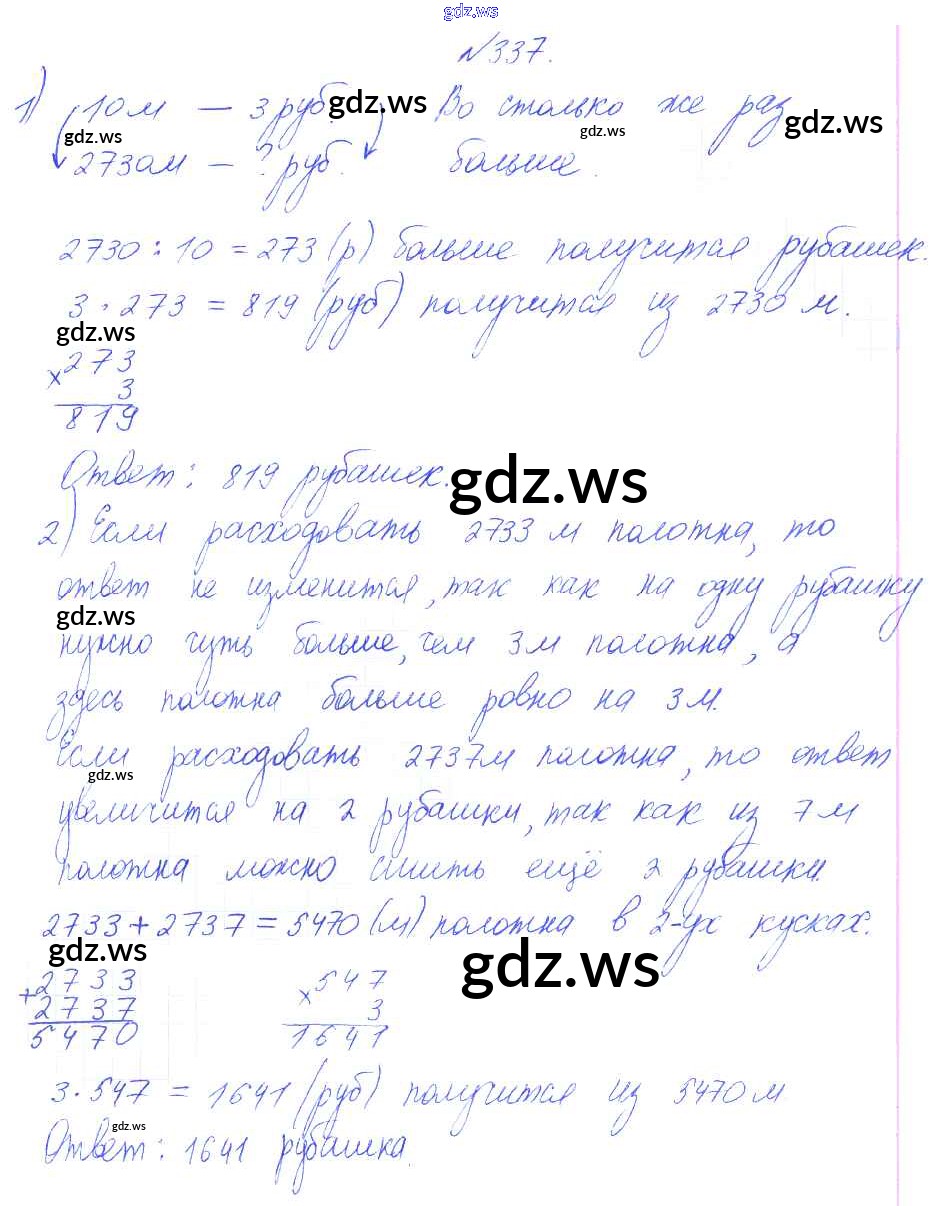 gdz.ws
№337.
1) 10м — 3 руб. gdz.ws Во столько же раз
gdz.ws gdz.ws gdz.ws
2730м — ? руб. больше.
2730 : 10 = 273 (р) больше получится рубашек.
3 · 273 = 819 (руб) получится из 2730 м.
gdz.ws
× 273
3
819
Ответ: 819 рубашек. gdz.ws
2) Если расходовать 2733 м полотна, то
ответ не изменится, так как на одну рубашку
gdz.ws
нужно чуть больше, чем 3м полотна, а
здесь полотна больше ровно на 3м.
Если расходовать 2737м полотна, то ответ
gdz.ws
увеличится на 2 рубашки, так как из 7м
полотна можно сшить ещё 2 рубашки.
2733 + 2737 = 5470 (м) полотна в 2-ух кусках.
gdz.ws gdz.ws
+ 2733 × 547
2737 3
5470 1641
3 · 547 = 1641 (руб) получится из 5470м
gdz.ws
Ответ: 1641 рубашка.